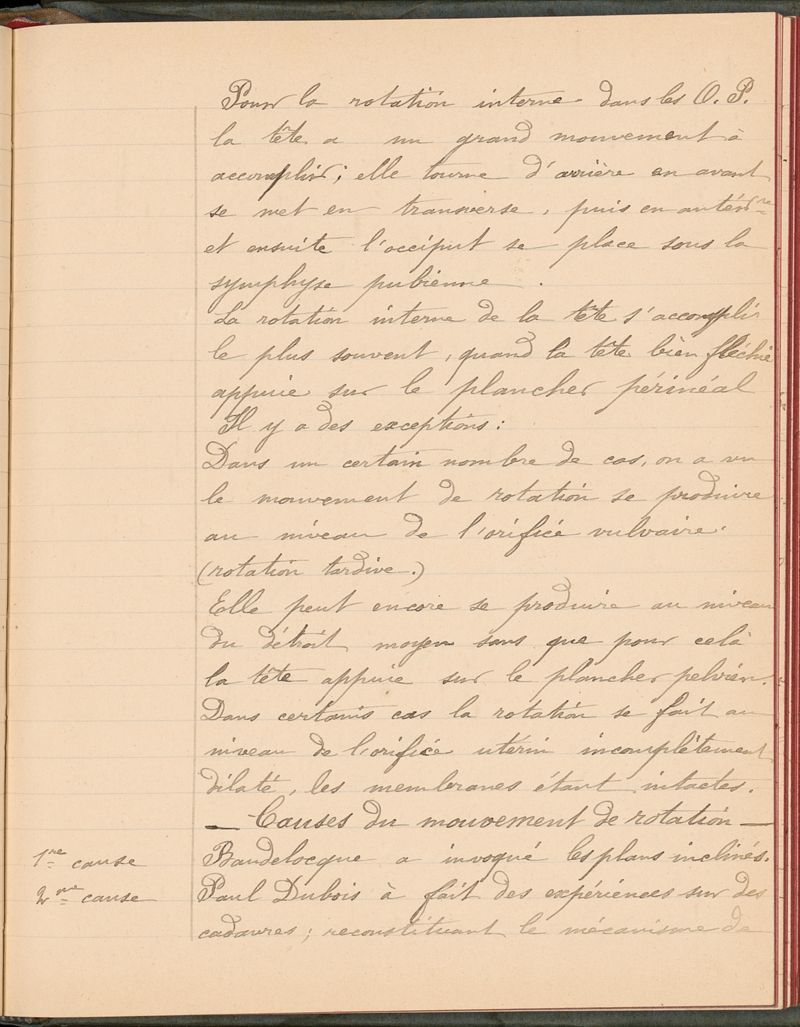 Pour la rotation interne dans les O. P.
la tête a un grand mouvement à
accomplir ; elle tourne d'arrière en avant
se met en transverse, puis en antérre
et ensuite l'occiput se place sous la
symphyse pubienne .
La rotation interne de la tête s'accomplir
le plus souvent, quand la tête bien fléchie
appuie sur le plancher périnéal
Il y a des exceptions :
Dans un certain nombre de cas, on a vu
le mouvement de rotation se produire
au niveau de l'orifice vulvaire.
(rotation tardive.)
Elle peut encore se produire au niveau
du détroit moyen sans que pour celà
la tête appuie sur le plancher pelvien.
Dans certains cas la rotation se fait au
niveau de l'orifice utérin incomplètement
dilaté, les membranes étant intactes.
— Causes du mouvement de rotation —
1re cause Baudelocque a invoqué les plans inclinés.
2me cause Paul Dubois à fait des expériences sur des
cadavres ; reconstituant le mécanisme de